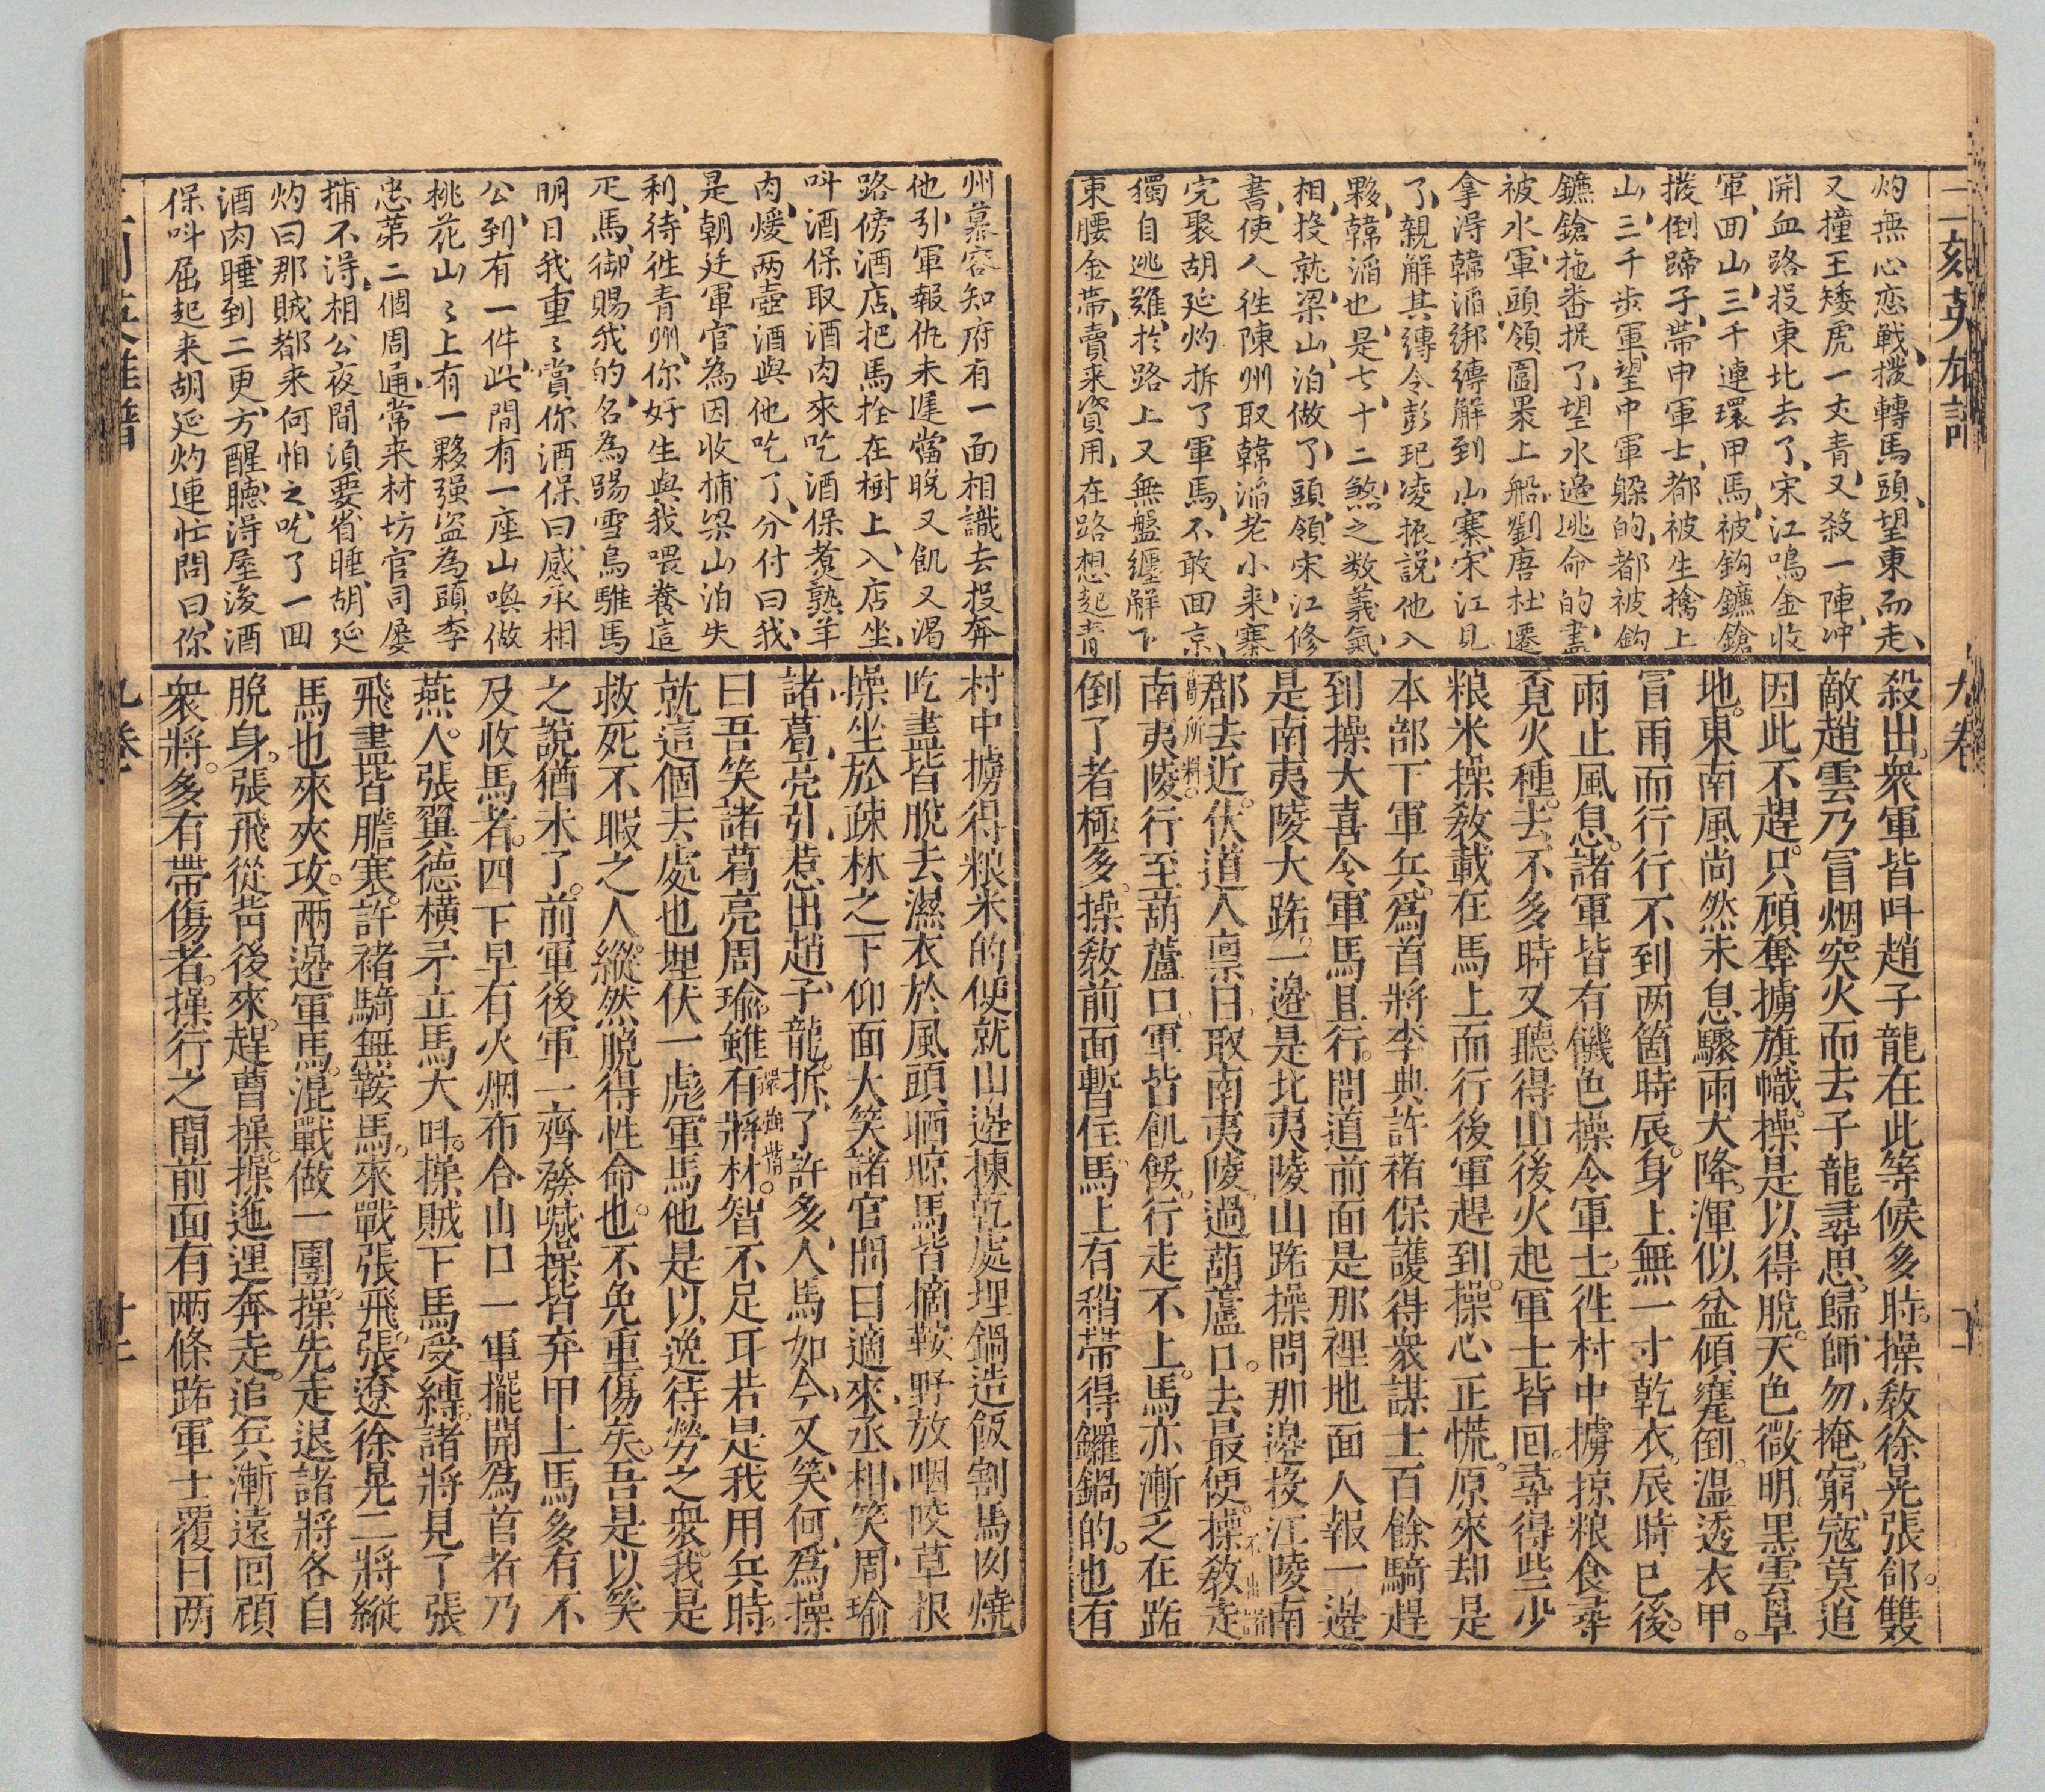 二刻英雄譜
九卷
灼無心恋戰撥轉馬頭望東而走
又撞王矮虎一丈青又殺一陣冲
開血路投東北去了宋江鳴金收
軍回山三千連環甲馬被鈎鐮鎗
撥倒蹄子帶甲軍士都被生擒上
山三千步軍望中軍躱的都被鈎
鐮鎗拖畨捉了望水邊逃命的盡
被水軍頭領圍裹上船劉唐杜遷
拿得韓滔綁縛解到山寨宋江見
了親解其縛令彭玘凌振說他入
夥韓滔也是七十二煞之数義氣
相投就梁山泊做了頭領宋江修
書使人徃陳州取韓滔老小來寨
完聚胡延灼折了軍馬不敢回京
獨自逃難於路上又無盤纏解下
束腰金帶賣来資用在路想起青
殺出衆軍皆呌趙子龍在此等候多時操敎徐晃張郃雙
敵趙雲乃冒烟突火而去子龍尋思歸師勿掩窮寇莫追
因此不趕只顧奪擄旗幟操是以得脫天色微明黒雲罩
地東南風尚然未息驟雨大降渾似盆傾甕倒濕透衣甲
冒雨而行行不到两箇時辰身上無一寸乾衣辰時已後
雨止風息諸軍皆有饑色操令軍士徃村中擄掠粮食尋
覓火種去不多時又聽得山後火起軍士皆回尋得些少
粮米操敎載在馬上而行後軍趕到操心正慌原來却是
本部下軍兵爲首將李典許褚保護得衆謀士百餘騎趕
到操大喜令軍馬且行問道前面是那裡地面人報一邊
是南夷陵大路一邊是北夷陵山路操問那邊投江陵南
郡去近伏道人禀曰取南夷陵過葫蘆口去最便操敎走
不出諸
葛所料
南夷陵行至葫蘆口軍皆飢餒行走不上馬亦漸乏在路
倒了者極多操敎前面暫住馬上有稍帶得鑼鍋的也有
州慕容知府有一面相識去投奔
他引軍報仇未遲當晚又飢又渴
路傍酒店把馬拴在樹上入店坐
呌酒保取酒肉來吃酒保煑熟羊
肉煖两壺酒與他吃了分付曰我
是朝廷軍官為因收捕梁山泊失
利待徃青州你好生與我喂養這
疋馬御賜我的名為踢雪烏騅馬
明日我重〻賞你酒保曰感承相
公到有一件此間有一座山喚做
桃花山〻上有一夥强盜為頭李
忠第二個周通常来材坊官司屡
捕不得相公夜間湏要省睡胡延
灼曰那賊都来何怕之吃了一囬
酒肉睡到二更方醒聽得屋後酒
保呌屈起来胡延灼連忙問曰你
村中擄得粮米的便就山邊揀乾處埋鍋造飯割馬肉燒
吃盡皆脫去濕衣於風頭晒晾馬皆摘鞍野放咽咬草根
操坐於疎林之下仰面大笑諸官問曰適來丞相笑周瑜
諸葛亮引惹出趙子龍折了許多人馬如今又笑何爲操
曰吾笑諸葛亮周瑜雖有將材智不足耳若是我用兵時
還強嘴
就這個去處也埋伏一彪軍馬他是以逸待勞之衆我是
救死不暇之人縱然脫得性命也不免重傷矣吾是以笑
之說猶未了前軍後軍一齊發喊操皆弃甲上馬多有不
及收馬者四下早有火烟布合山口一軍擺開為首者乃
燕人張翼德横矛立馬大呌操賊下馬受縛諸將見了張
飛盡皆膽寒許褚騎無鞍馬來戰張飛張遼徐晃二將縱
馬也來夾攻两邊軍馬混戰做一團操先走退諸將各自
脫身張飛從背後來趕曹操操迤逕奔走追兵漸遠回顧
衆將多有帶傷者操行之間前面有两條路軍士覆曰两
二刻英雄譜
九卷